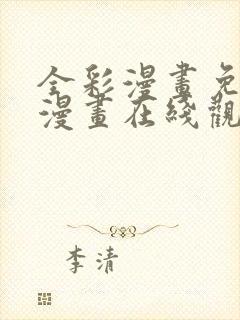 全彩漫畫免
漫畫在綫觀
李清